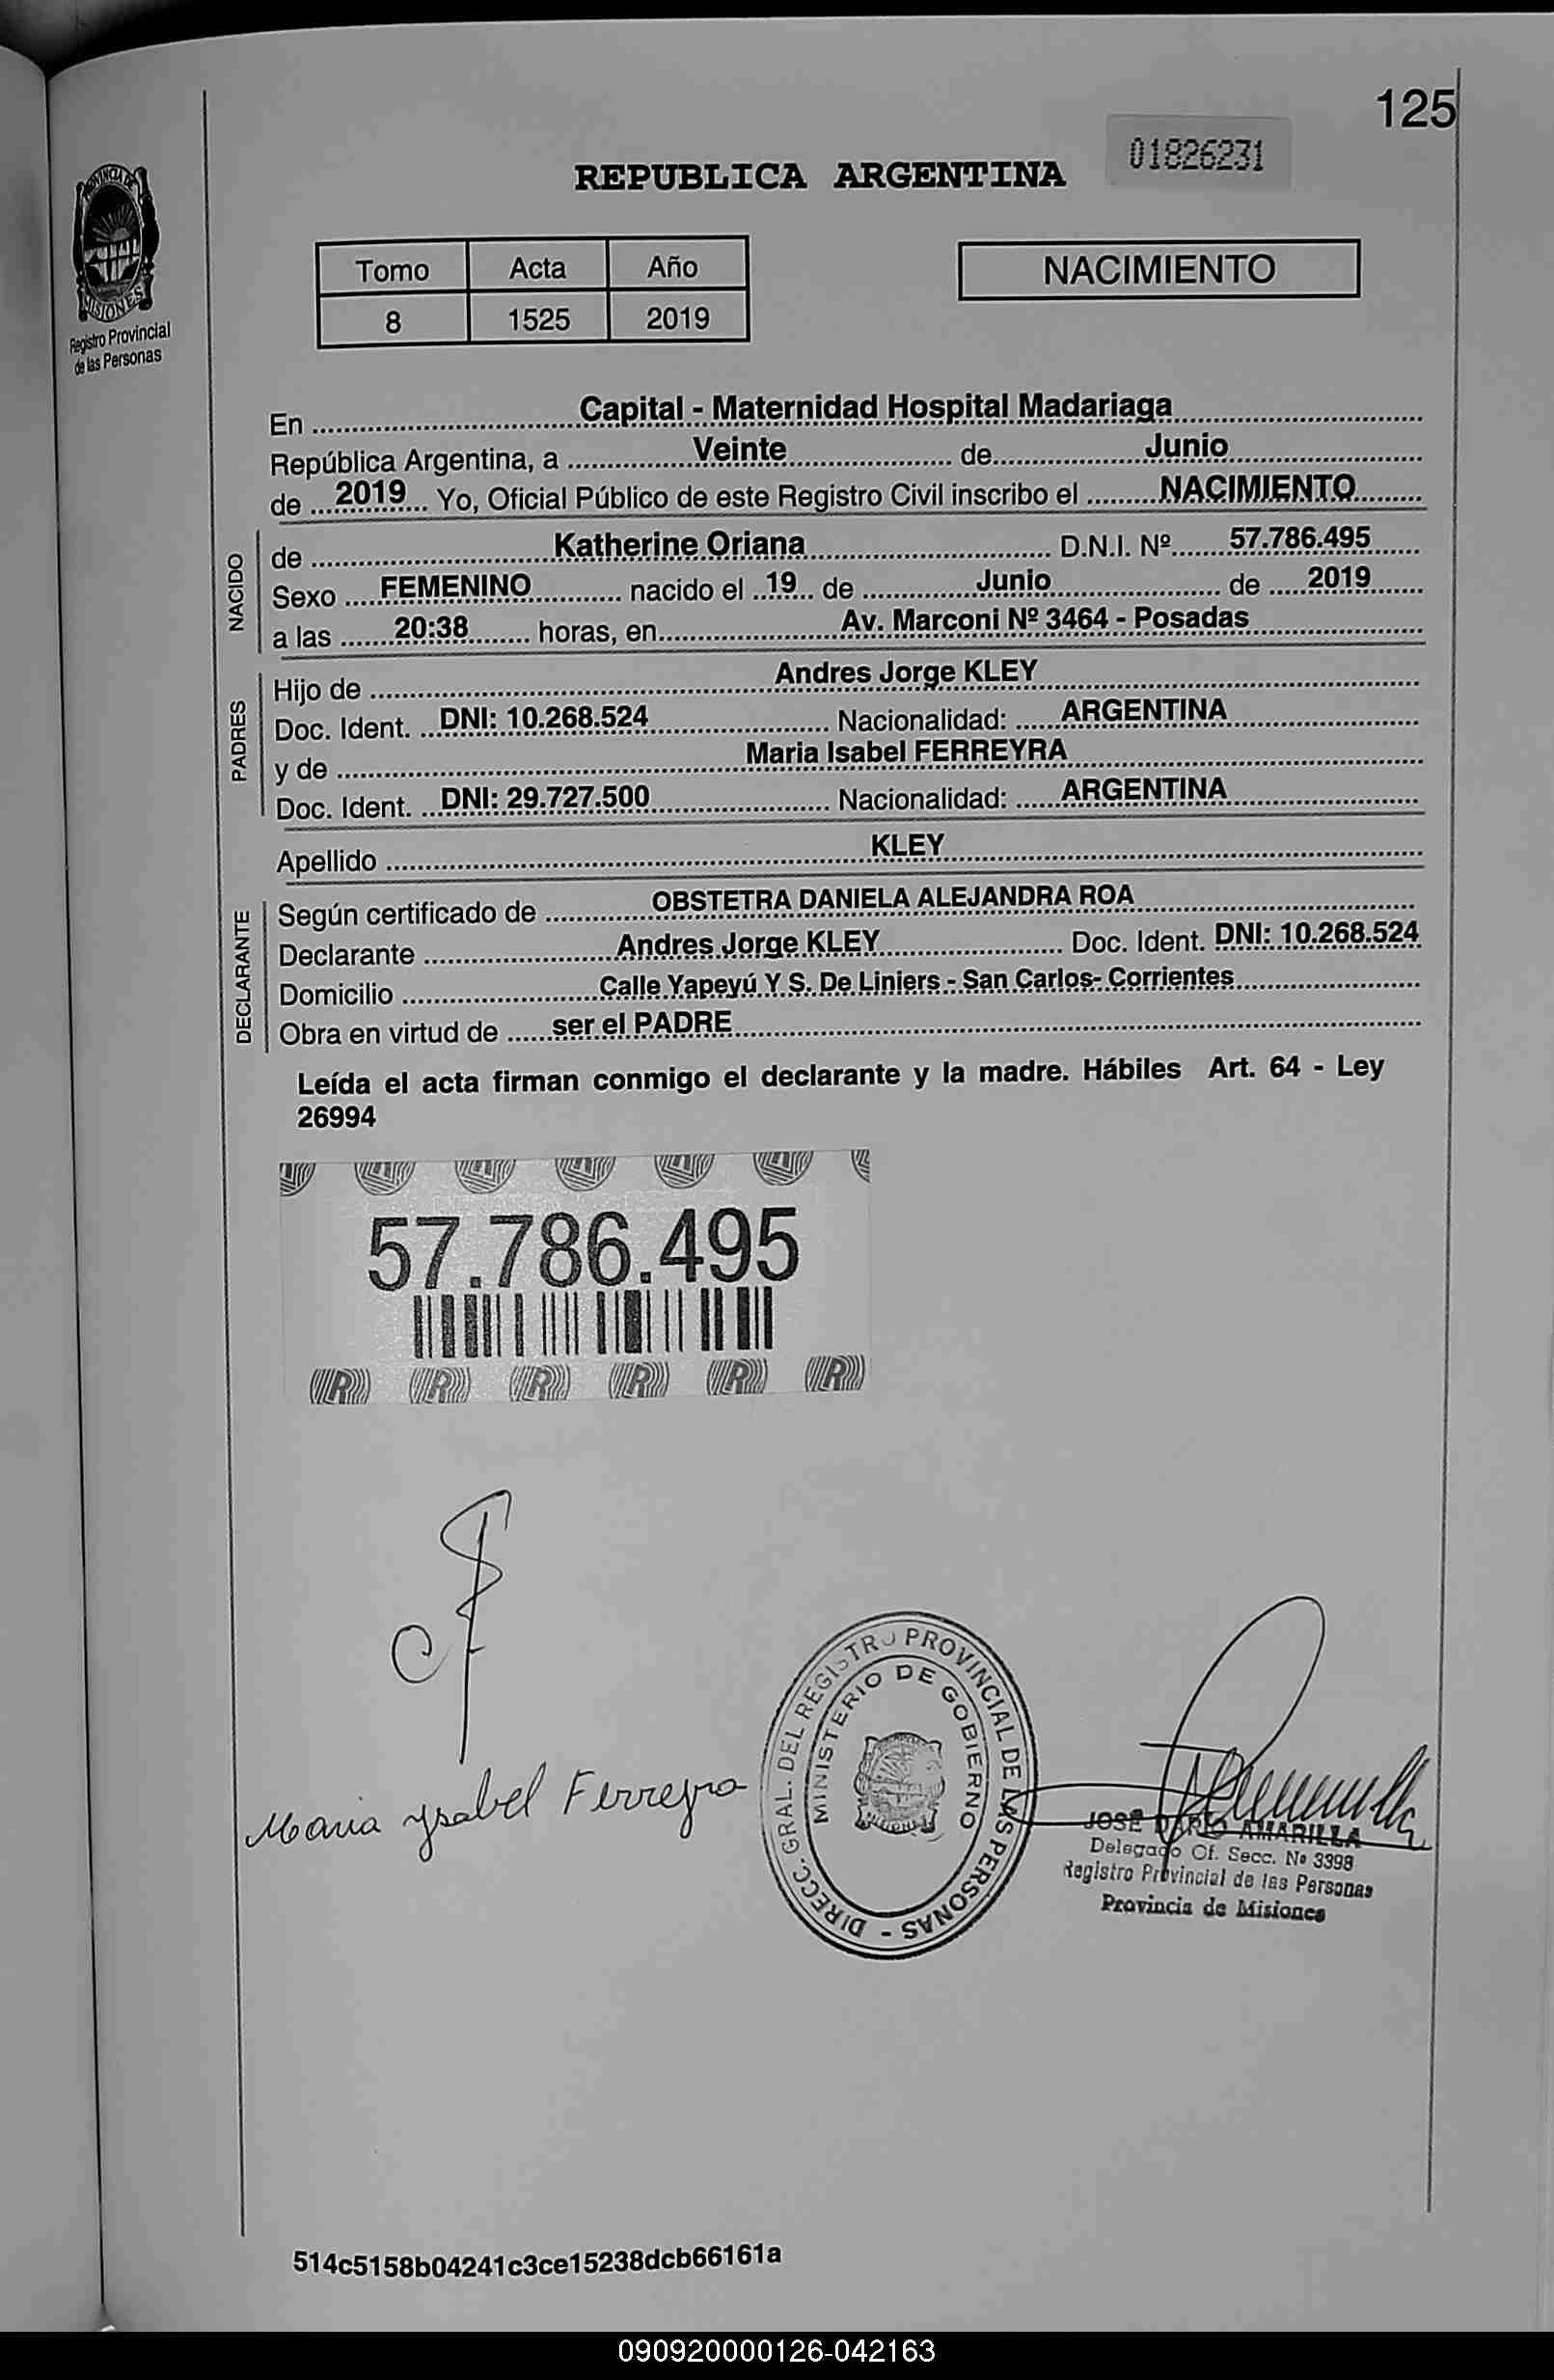 125
01826231
REPUBLICA ARGENTINA
PROVINCIA DE
MISIONES
Registro Provincial
de las Personas
Tomo Acta Año
8 1525 2019
NACIMIENTO
En Capital - Maternidad Hospital Madariaga
República Argentina, a Veinte de Junio
de 2019 Yo, Oficial Público de este Registro Civil inscribo el NACIMIENTO
NACIDO
de Katherine Oriana D.N.I. Nº 57.786.495
Sexo FEMENINO nacido el 19 de Junio de 2019
a las 20:38 horas, en Av. Marconi Nº 3464 - Posadas
PADRES
Hijo de Andres Jorge KLEY
Doc. Ident. DNI: 10.268.524 Nacionalidad: ARGENTINA
y de Maria Isabel FERREYRA
Doc. Ident. DNI: 29.727.500 Nacionalidad: ARGENTINA
Apellido KLEY
DECLARANTE
Según certificado de OBSTETRA DANIELA ALEJANDRA ROA
Declarante Andres Jorge KLEY Doc. Ident. DNI: 10.268.524
Domicilio Calle Yapeyú Y S. De Liniers - San Carlos- Corrientes
Obra en virtud de ser el PADRE
Leída el acta firman conmigo el declarante y la madre. Hábiles Art. 64 - Ley
26994
57.786.495
Maria Ysabel Ferreyra
DIRECC. GRAL. DEL REGISTRO PROVINCIAL DE LAS PERSONAS -
MINISTERIO DE GOBIERNO
JOSE DARIO AMARILLA
Delegado Of. Secc. Nº 3398
Registro Provincial de las Personas
Provincia de Misiones
514c5158b04241c3ce15238dcb66161a
090920000126-042163